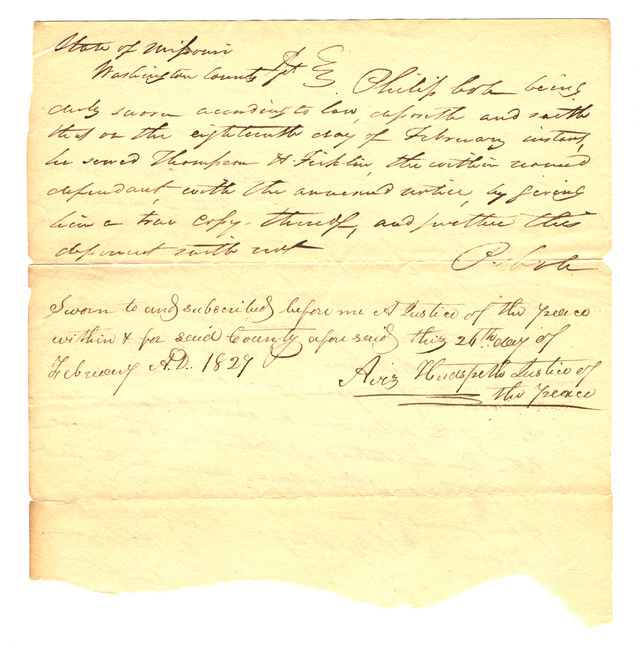 State of Missouri
Washington County Philip Cole being
duly sworn according to law, deposeth and saith
that on the eighteenth day of February instant,
he served Thompson H Ficklin, the within named
defendant, with the annexed notice, by giving
him a true copy thereof, and further this
deponent saith not
P. Cole
Sworn to and subscribed before me A Justice of the Peace
within & for said County aforesaid this 26th day of
February A.D. 1827
Ariz Hudspeth Justice of
the Peace